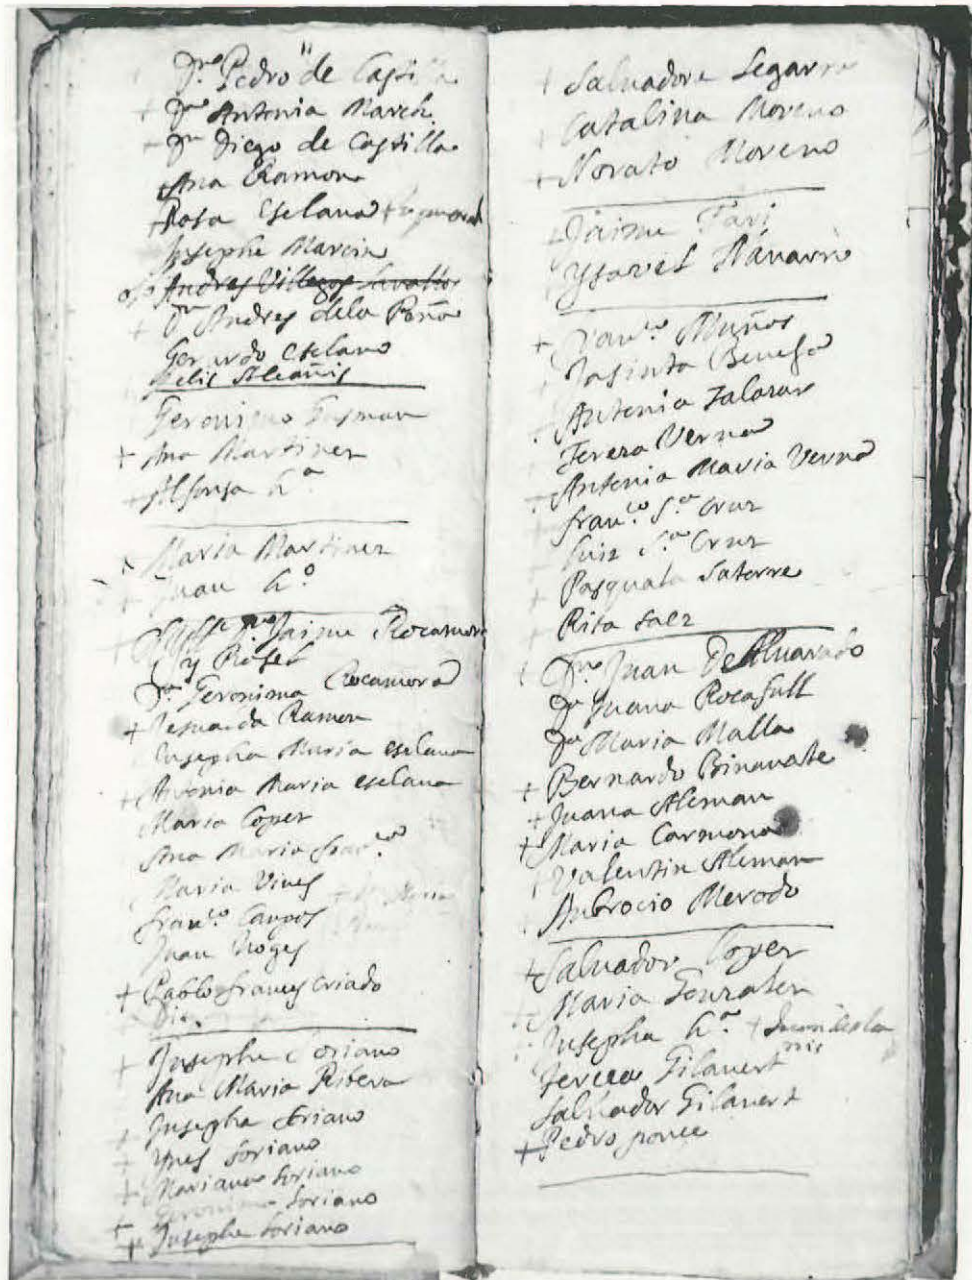 Dn Pedro de Castilla
+ Da Antonia March
+ Dn Diego de Castilla
Ana Ramona
+ Rosa Esclava
Josepha Maria
Andres Villegas
+ Dn Andres dela Peña
Gerardo Esclavo
Felis Alcañis
Geronimo Gusman
+ Ana Martinez
+ Alfonsa ha
Maria Martinez
+ Juan ho
Jaime Rocamora
y Rosel
Da Geronima Rocamora
+ Ramon
Jusepha Maria esclava
+ Antonia Maria esclava
Maria Lopez
Ana Maria franco
Maria Vives
franco Campos
Juan Noges
+ Pablo frances criado
+ Jusepha Soriano
Ana Maria Ribera
+ Jusepha Soriano
+ Ynes Soriano
+ Mariana Soriano
+ Geronima Soriano
+ Jusepha Soriano
+ Salvadora Segarra
+ Catalina Moreno
+ Norato Moreno
+ Jaime
Ysavel Navarro
+ Franco Muños
Jasinta
Antonia Salazar
Tereza Verna
Antonia Maria Verna
franco Sta Cruz
Luis Sta Cruz
+ Pasquala Satorre
+ Rita Saez
Dn Juan De Alvarado
Da Juana Rocafull
Da Maria Malla
+ Bernardo Binavate
+ Juana Aleman
+ Maria Carmona
Valentin Aleman
Ambrocio Mercado
+ Salvador Lopez
Maria Gonzalez
Jusepha ha
Tereza Gilavert
Salvador Gilavert
+ Pedro ponce